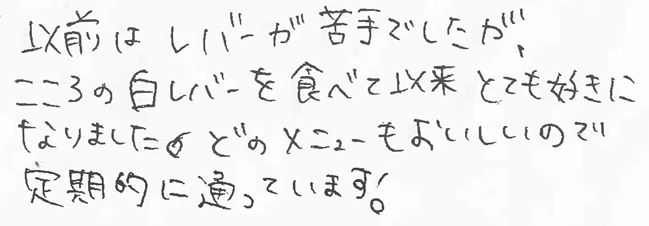 以前はレバーが苦手でしたが、
こころの白レバーを食べて以来とても好きに
なりました。どのメニューもおいしいので
定期的に通っています!